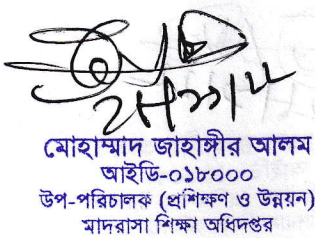 মোহাম্মাদ জাহাঙ্গীর আলম
আইডি-০১৮০০০
উপ-পরিচালক (প্রশিক্ষণ ও উন্নয়ন)
মাদরাসা শিক্ষা অধিদপ্তর